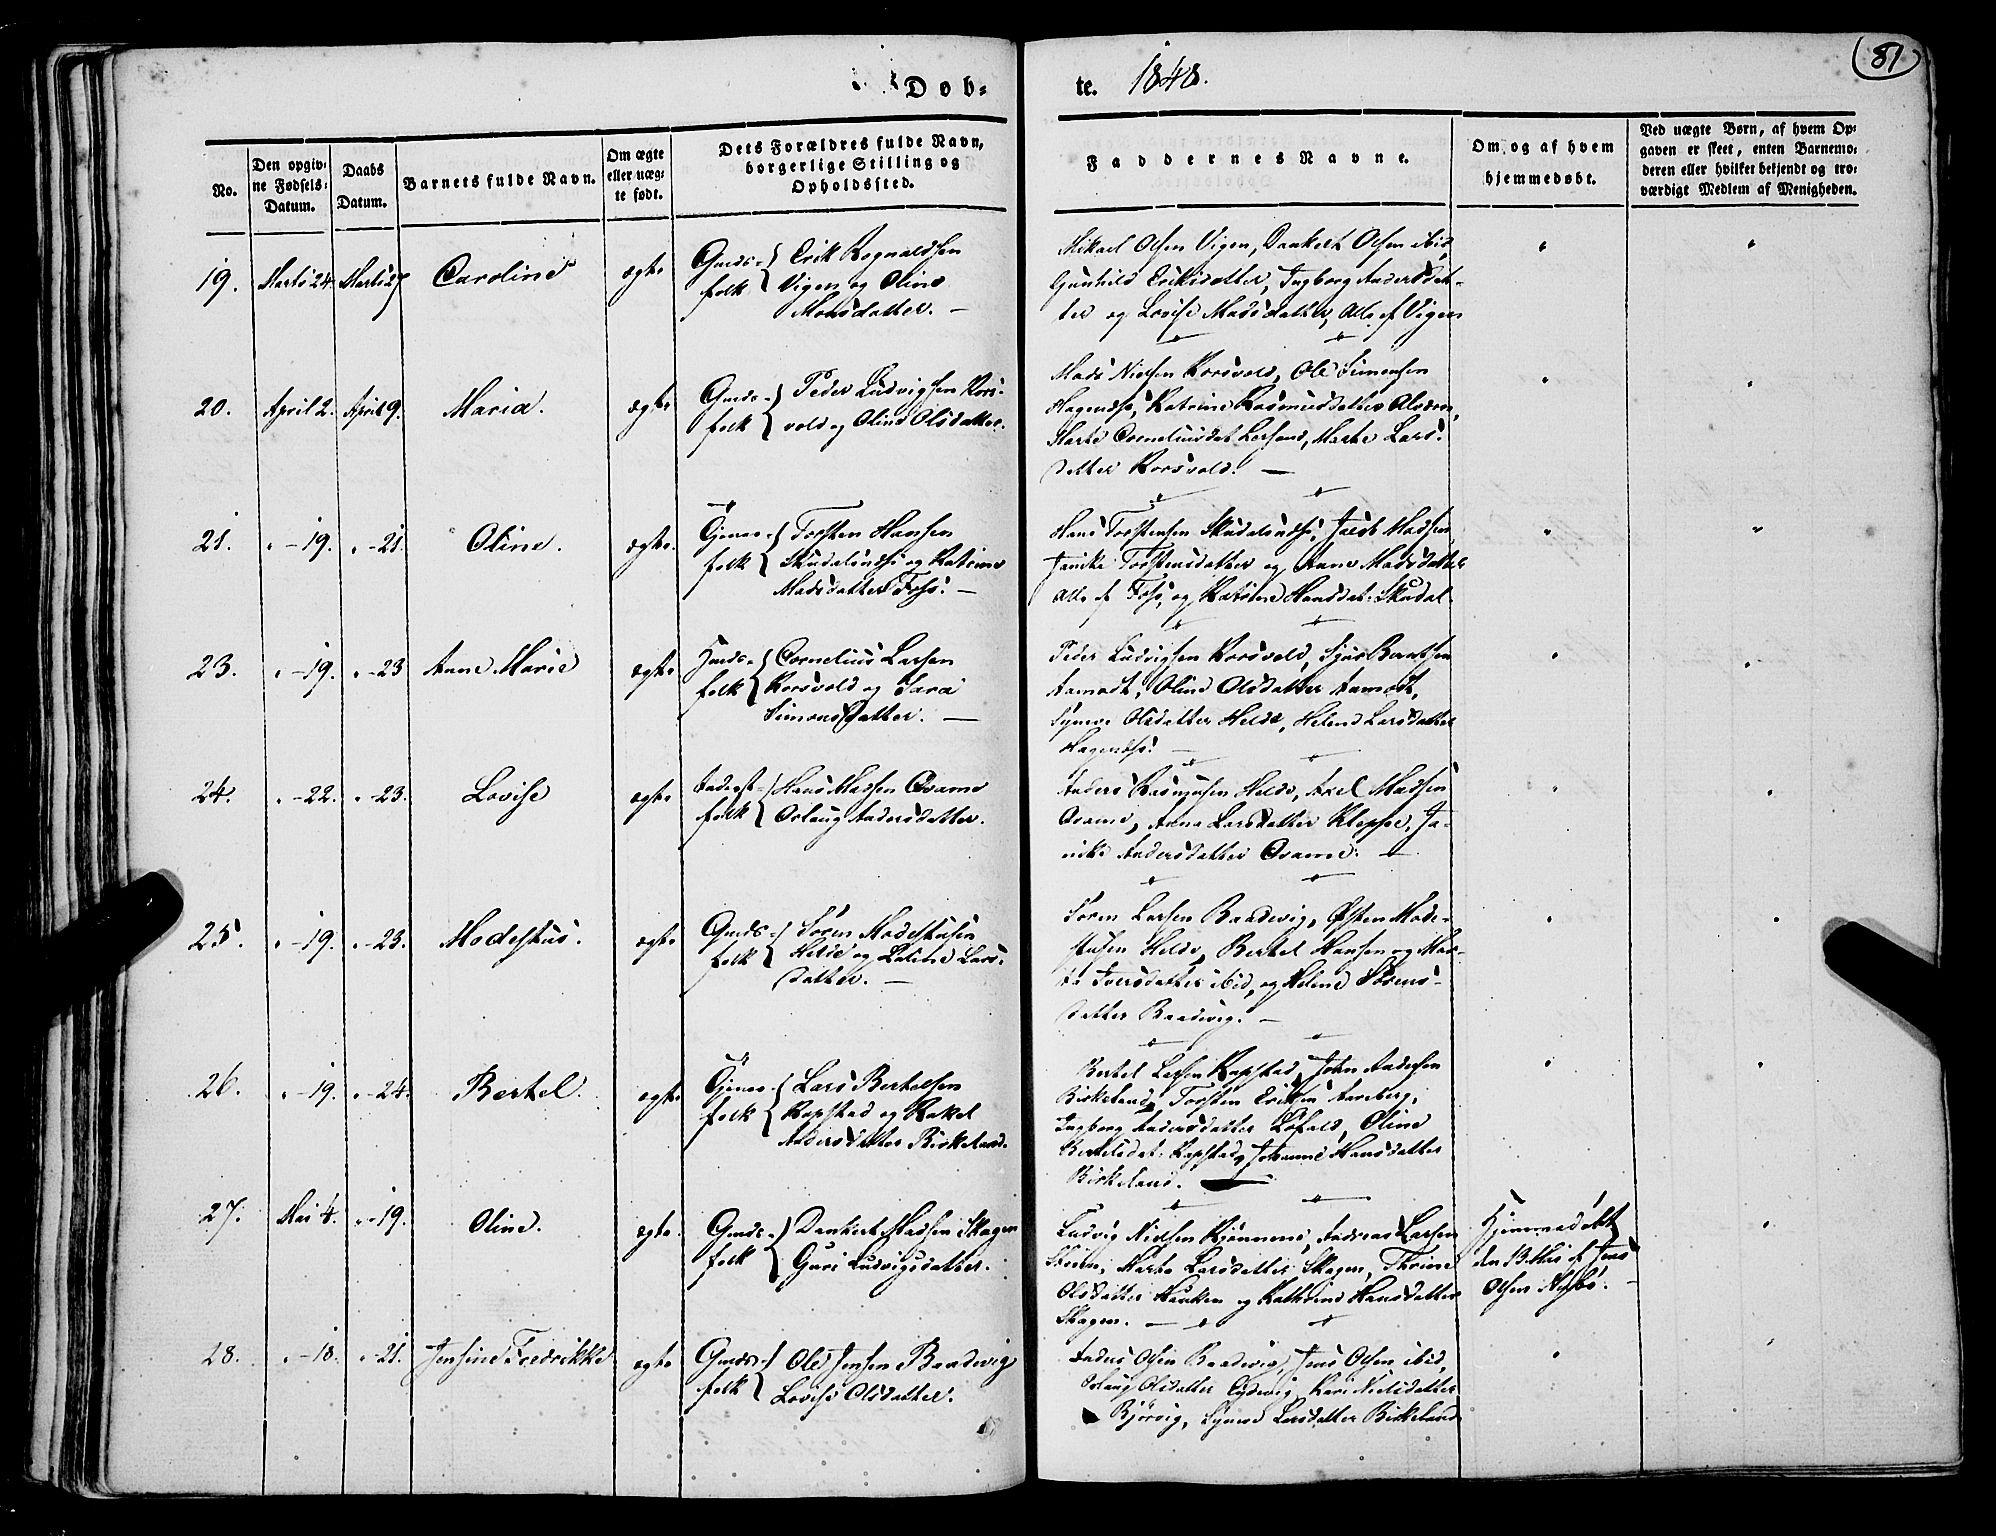 81
Døb-
te. 1848.
No.
Den opgiv-
ne Fødsels-
Datum.
Daabs
Datum.
Barnets fulde Navn.
Om ægte
eller uæg-
te født.
Dets Forældres fulde Navn,
borgerlige Stilling og
Opholdssted.
Faddernes Navne.
Om og af hvem
hjemmedøbt.
Ved uægte Børn, af hvem Op-
gaven er skeet, enten Barnemo-
deren eller hvilket bekjendt og tro-
værdigt Medlem af Menigheden.
19. Marts 24. Marts 27 Caroline ægte
Gmds-
folk
Erik Rognaldsen
Vigen og Oline
Monsdatter. —
Mikael Olsen Vigen, Dankert Olsen ibid
Gunhild Eriksdatter, Ingborg Andersdat-
ter og Lovise Madsdatter, Alle af Vigen
20. April 2. April 9. Maria. ægte
Gmds-
folk
Peder Ludvigsen Kors-
vold og Oline Olsdatter.
Mads Nielsen Korsvold, Ole Simensen
Hagen, Katrine Rasmusdatter
Marte Corneliusdat. Marte Lars-
datter Korsvold. —
21. " - 19. " - 21. Oline. ægte.
folk
Torsten Hansen
og Katrine
Madsdatter Foss. —
Hans Torstensen Madsen
Torstensdatter og Anne Madsdatter
Alle af Foss, og Katrine Hansdat. Skudal-
23. " - 19. " - 23 Anne Marie ægte
folk
Cornelius Larsen
Korsvold og Sara
Simonsdatter. —
Peder Ludvigsen Korsvold, Sjur Berntsen
Aamodt, Oline Olsdatter Aamodt,
Synove Olsdatter Helde, Helene Larsdatter
24. " - 22. " - 23. Lovise ægte
folk
Hans Madsen Qvame
Orlaug Andersdatter.
Anders Rasmusen Helde, Axel Madsen
Qvame, Anna Larsdatter Kleppe, Ja-
nike Andersdatter Qvame. —
25. " - 19. " - 23. Modestus. ægte
Gmds-
folk
Søren Modestusen
Helde og Lars-
datter. —
Søren Larsen Baadevig, Østen Mode-
stusen Helde, Bertel Hansen og Mar-
ta Iversdatter ibid, og Helene Sørens-
datter Baadevig. —
26. " - 19. " - 24. Bertel. ægte
folk
Lars Bertelsen
Rapstad og Rakel
Andersdatter Birkeland.
Bertel Larsen Rapstad, John Andersen
Birkeland, Torsten Eriksen Aaeberg,
Ingborg Andersdatter Oline
Bertelsdat. Rapstad, Johanne Hansdatter
Birkeland.
27. Mai 4. " - 19. Oline. ægte.
Gmds-
folk
Dankert Madsen Skagen
Guri Ludvigsdatter.
Ludvig Nielsen Andreas Larsen
Marte Larsdatter Skagen, Thrine
Olsdatter og Kathrine Hansdatter
Skagen. —
Hjemmedøbt
den Mai af Jens
Olsen
28. " - 18. " - 21. Jensine Fredrikke ægte
Gmds-
folk
Ole Jensen Baadevig
Lovise Olsdatter.
Anders Olsen Baadevig, Jens Olsen ibid,
Orlaug Olsdatter Kari Nielsdatter
Bjørvig, Synove Larsdatter Birkeland